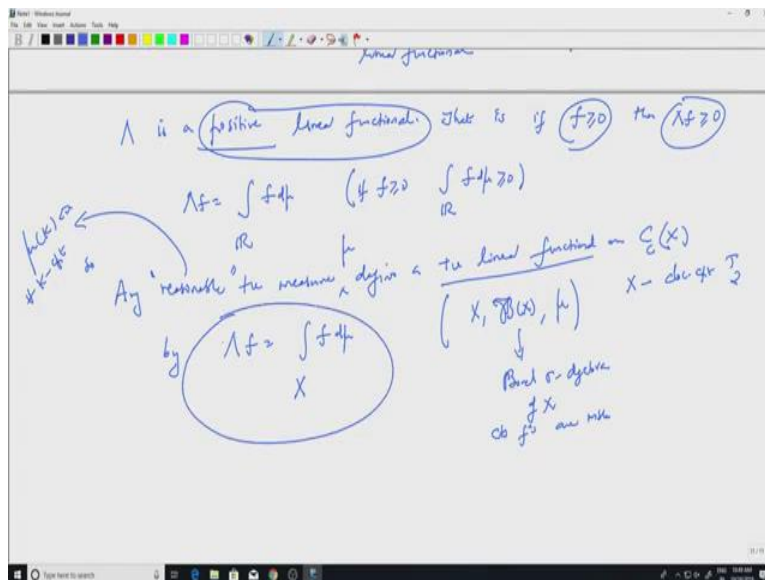 Note1 - Windows Journal
File Edit View Insert Actions Tools Help
linear functional
Λ is a positive linear functional. That is if f ≥ 0 then Λf ≥ 0
Λf = ∫ f dμ (if f ≥ 0 ∫ f dμ ≥ 0)
ℝ ℝ
μ(K) < ∞
∀ K - cpt
so Any "reasonable" +ve measure μ defines a +ve linear functional on C_c(X)
X - loc. cpt T_2
by Λf = ∫ f dμ
X
(X, B(X), μ)
↓
Borel σ-algebra
of X
cts f's are
Type here to search
ENG 10:48 AM